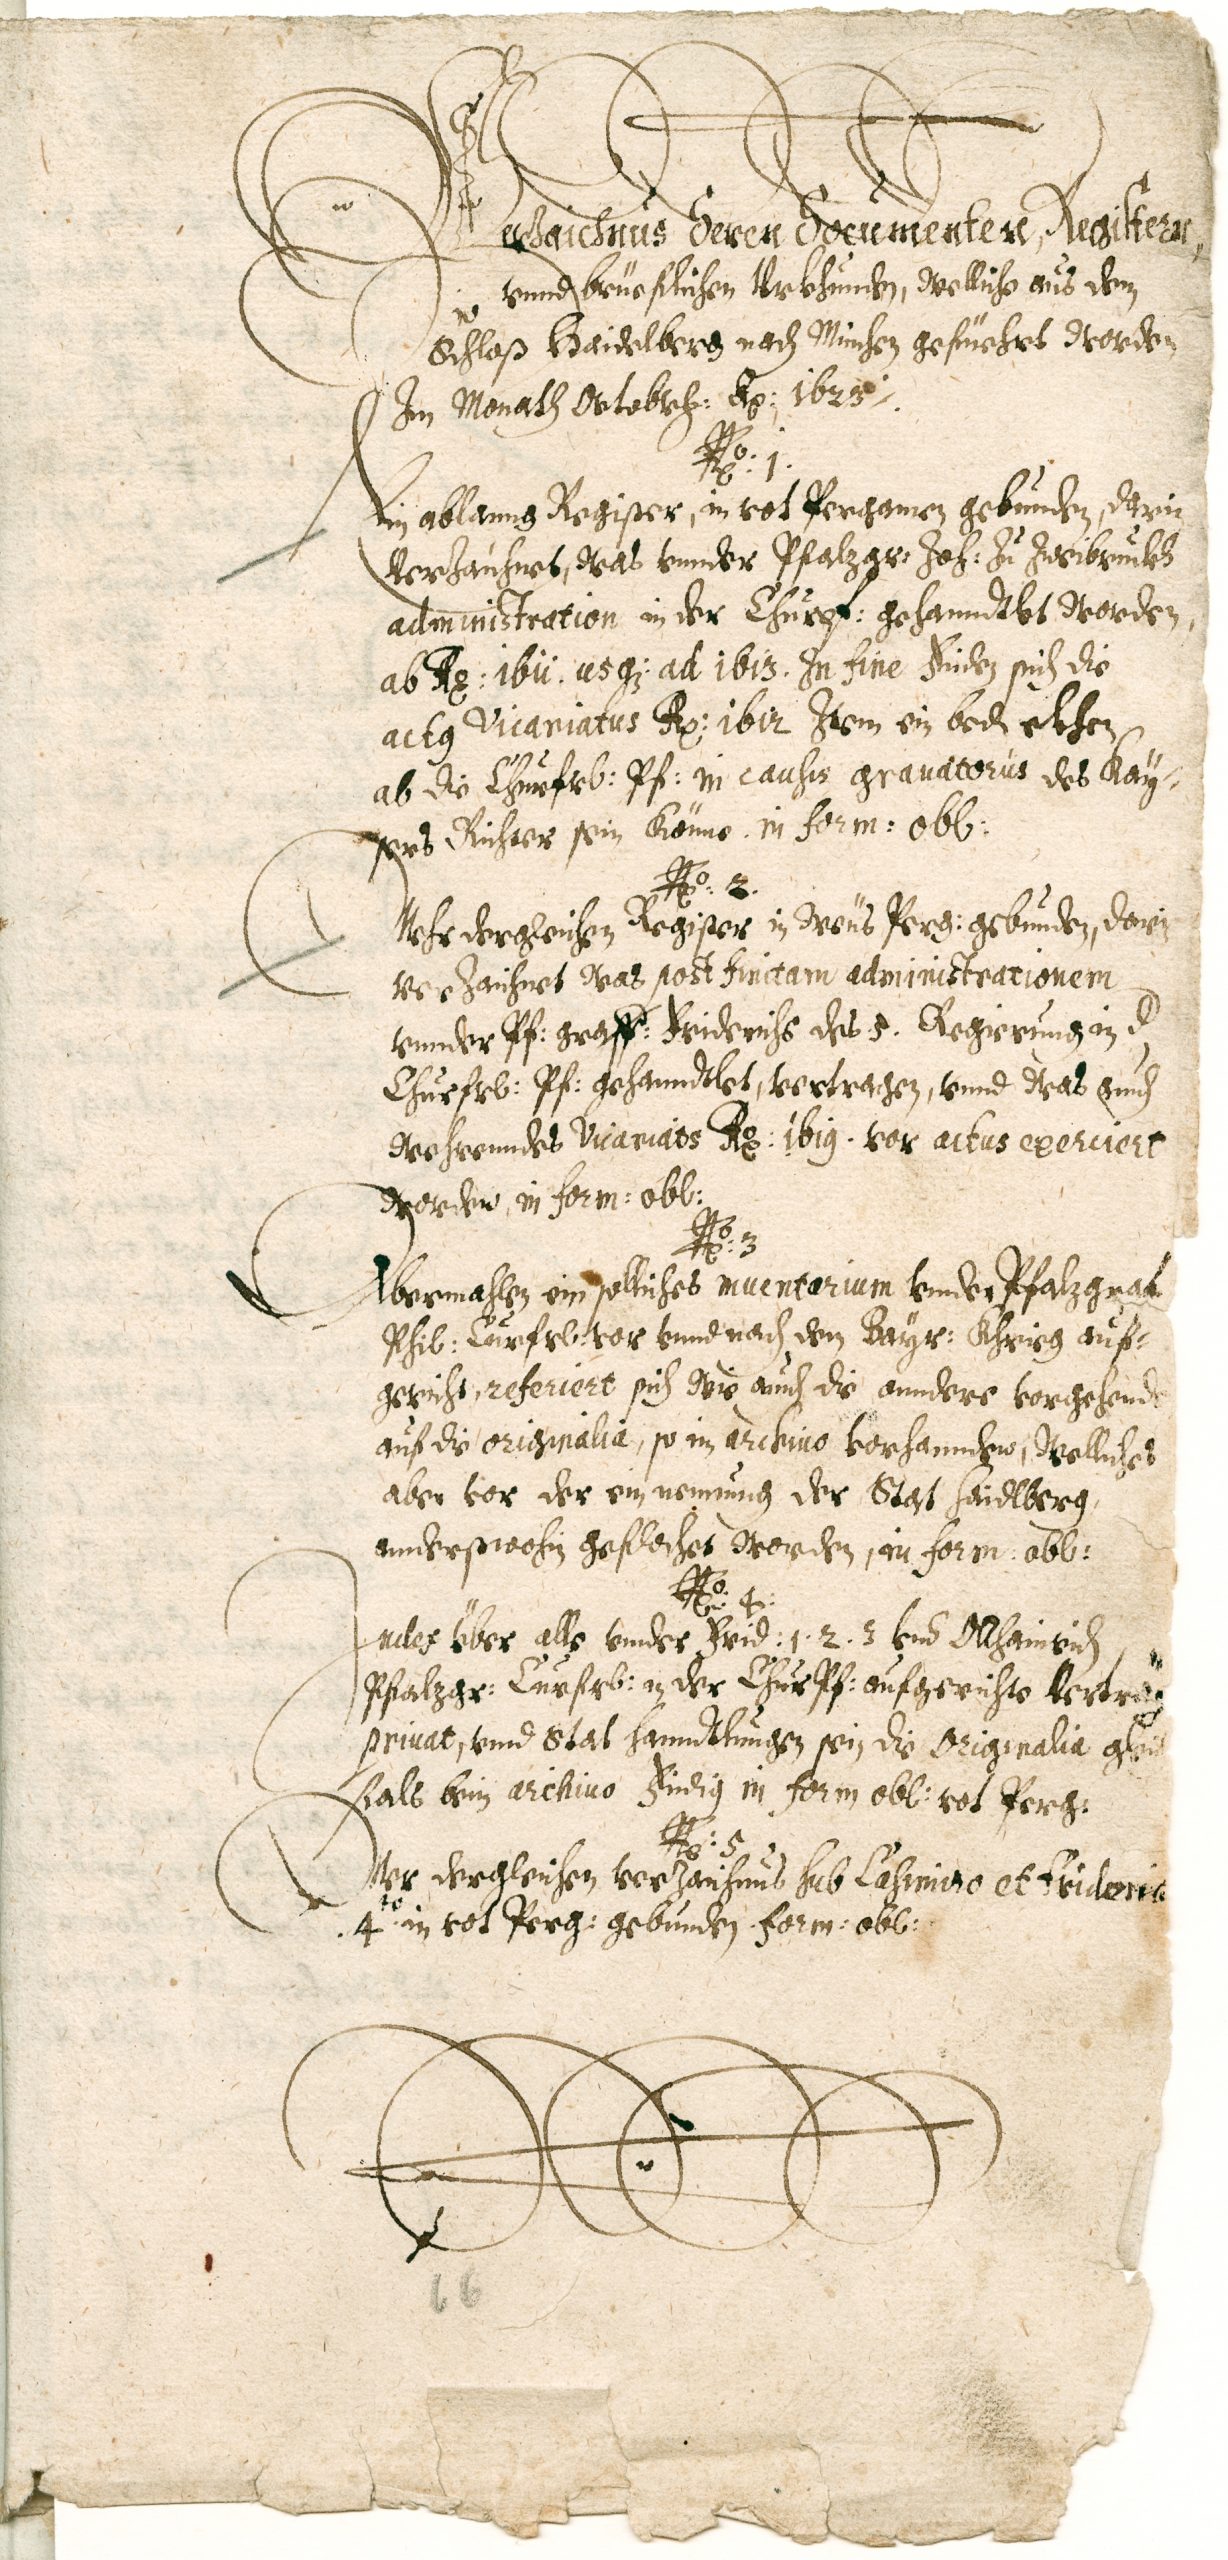 Verzaichnus deren Documenten, Registern,
vnnd brüeflichen Vrkhunden, welliche aus dem
Schloß Haidelberg nach München gefüehrt worden
Im Monath Octobris: Ao: 1623.
No: 1.
Ein ablanng Register, in rot Pergamen gebunden, darin
verzaichnet, was vnnder Pfalzgr: Joh: zu Zweibruckh
administration in der Churpf: gehanndtlet worden,
ab Ao: 1611. usq: ad 1613. In fine finden sich die
actus Vicariatus Ao: 1612 Item ein bedenckhen
ob die Churfrl: Pf: in causis grauatorius des Kay-
sers Richter sein könne. in form: obl:
No: 2.
Mehr dergleichen Register in weis Perg: gebunden, darin
verzaichnet was post finitam administrationem
vnnder Pf: graff: Friderichs des 5. Regierung in d
Churfrl: Pf: gehanndtlet, vertragen, vnnd was auch
wehrenndes Vicariats Ao: 1619. vor actus exerciert
worden, in form: obl:
No: 3
Abermahlen ein solliches inuentarium vnnder Pfalzgraf
Phil: Curfrl: vor vnnd nach dem Bayr: Khrieg auf-
gericht, referiert sich wie auch die anndere vorgehende
auf die originalia, so in archiuo vorhannden, welliches
aber vor der einnemung der Stat Haidlberg,
annderßwohin geflechet worden, in form: obl:
No: 4:
Index über alle vnnder Frid: 1. 2. 3 vnd Ottheinrich
Pfalzgr: Curfrl: in der ChurPf: aufgerichte Vertrag
priuat, vnnd Stat hanndtlungen sein die Originalia gleich
fals beim archiuo findig in form obl: rot Perg:
No: 5
Mer dergleichen verzaichnus sub Casimiro et Friderico
4to. in rot Perg: gebunden form: obl:
66